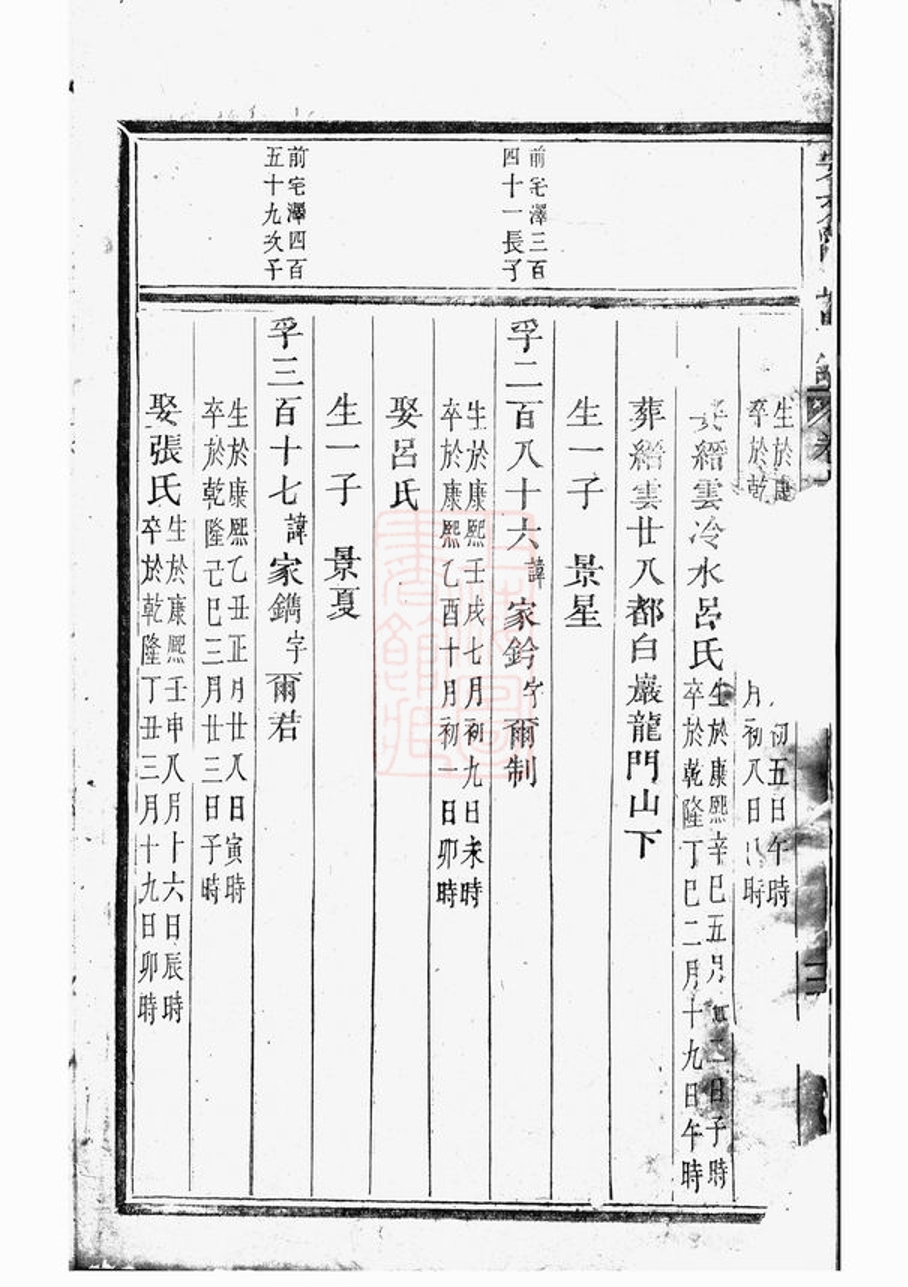 生於康
初五日午時
卒於乾
月初八日 時
娶縉雲冷水呂氏
生於康熙辛巳五月 二日子時
卒於乾隆丁巳二月十九日午時
葬縉雲廿八都白巖龍門山下
生一子 景星
前宅澤三百
四十一長子
孚二百八十六 諱 家鈐 字 爾制
生於康熙壬戌七月初九日未時
卒於康熙乙酉十月初一日卯時
娶呂氏
生一子 景夏
前宅澤四百
五十九次子
孚三百十七 諱 家鐫 字 爾君
生於康熙乙丑正月廿八日寅時
卒於乾隆己巳三月廿三日子時
娶張氏
生於康熙壬申八月十六日辰時
卒於乾隆丁丑三月十九日卯時
上海圖
書館藏